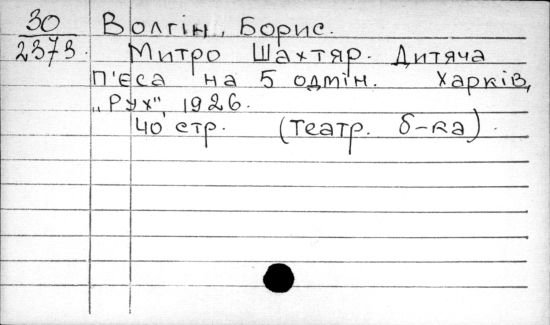 30 Волгін, Борис.
2373. Митро Шахтяр. Дитяча
п'єса на 5 одмін. Харків,
„Рух", 1926.
40 стр. (Театр. б-ка).